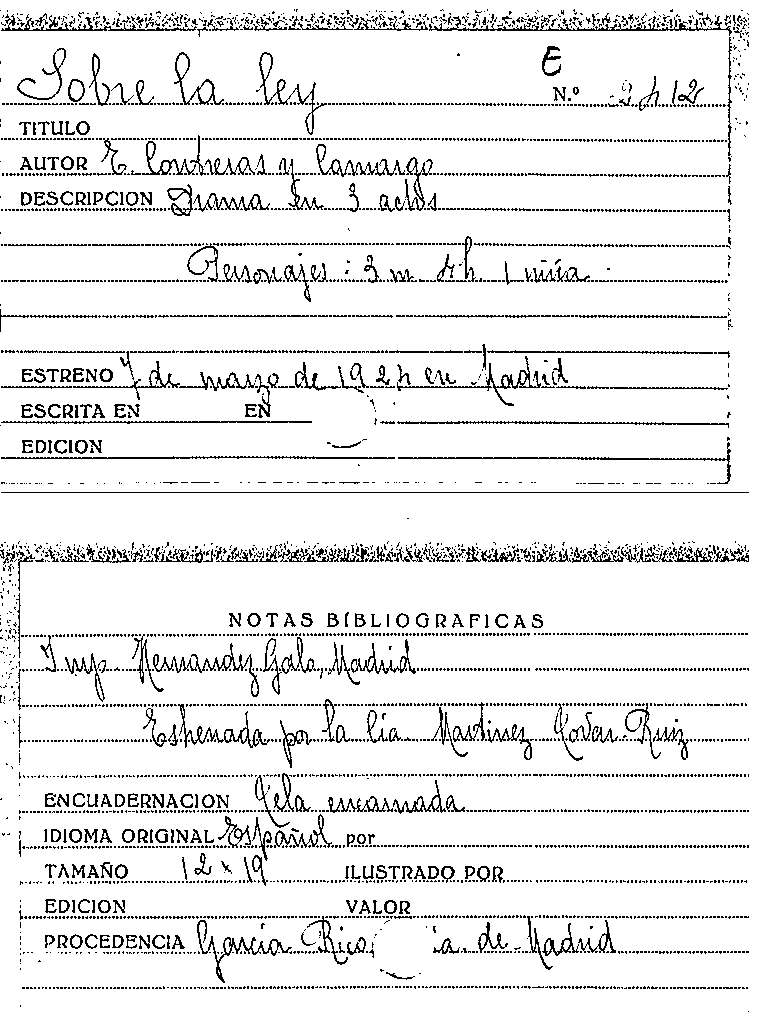 Sobre la ley
E
N.º 2412
TITULO
AUTOR E. Contreras y Camargo
DESCRIPCION Drama en 3 actos
Personajes: 3 m. 4 h. 1 niña.
ESTRENO 7 de marzo de 1924 en Madrid
ESCRITA EN EN
EDICION
NOTAS BIBLIOGRAFICAS
Imp. Hernandez Galo, Madrid
Estrenada por la Cía. Martinez Tovar-Ruiz
ENCUADERNACION Tela encarnada
IDIOMA ORIGINAL Español por
TAMAÑO 12 x 19 ILUSTRADO POR
EDICION VALOR
PROCEDENCIA García Rico, ía. de Madrid